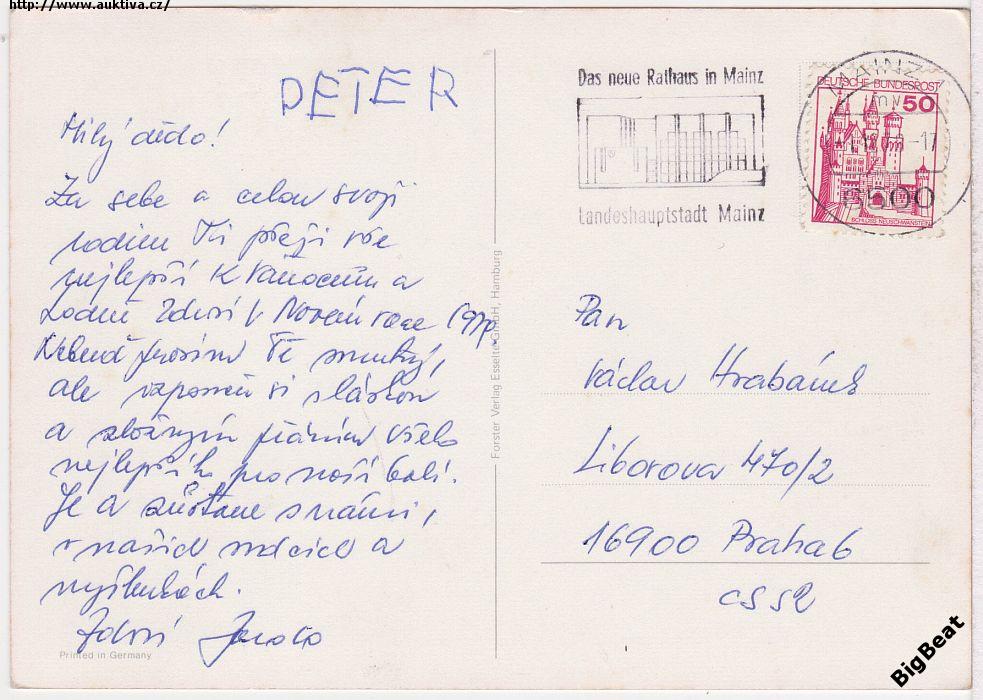 http://www.auktiva.cz/
PETER
Milý dědo!
Za sebe a celou svoji
rodinu Ti přeji vše
nejlepší k Vánocům a
hodně zdraví v Novém roce
Nebuď prosím Tě smutný,
ale vzpomeň si s láskou
a zbožným přáním všeho
nejlepšího pro naší babi.
Je a zůstane s námi,
v našich srdcích a
myšlenkách.
Zdraví
Printed in Germany
Forster Verlag Esselte GmbH, Hamburg
Das neue Rathaus in Mainz
Landeshauptstadt Mainz
MAINZ
-17
6500
DEUTSCHE BUNDESPOST
50
SCHLOSS NEUSCHWANSTEIN
Pan
Václav Hrabánek
Liborova 470/2
16900 Praha 6
ČSSR
BigBeat